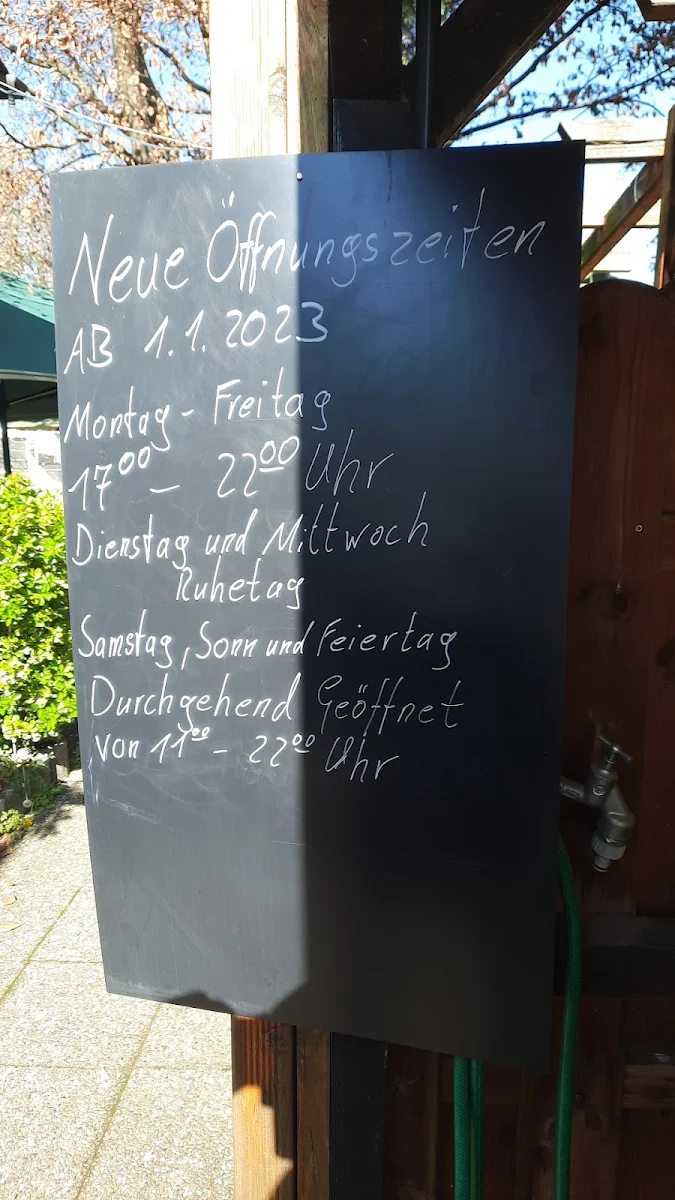 Neue Öffnungszeiten
AB 1.1.2023
Montag - Freitag
17⁰⁰ - 22⁰⁰ Uhr
Dienstag und Mittwoch
Ruhetag
Samstag, Sonn und Feiertag
Durchgehend Geöffnet
von 11⁰⁰ - 22⁰⁰ Uhr